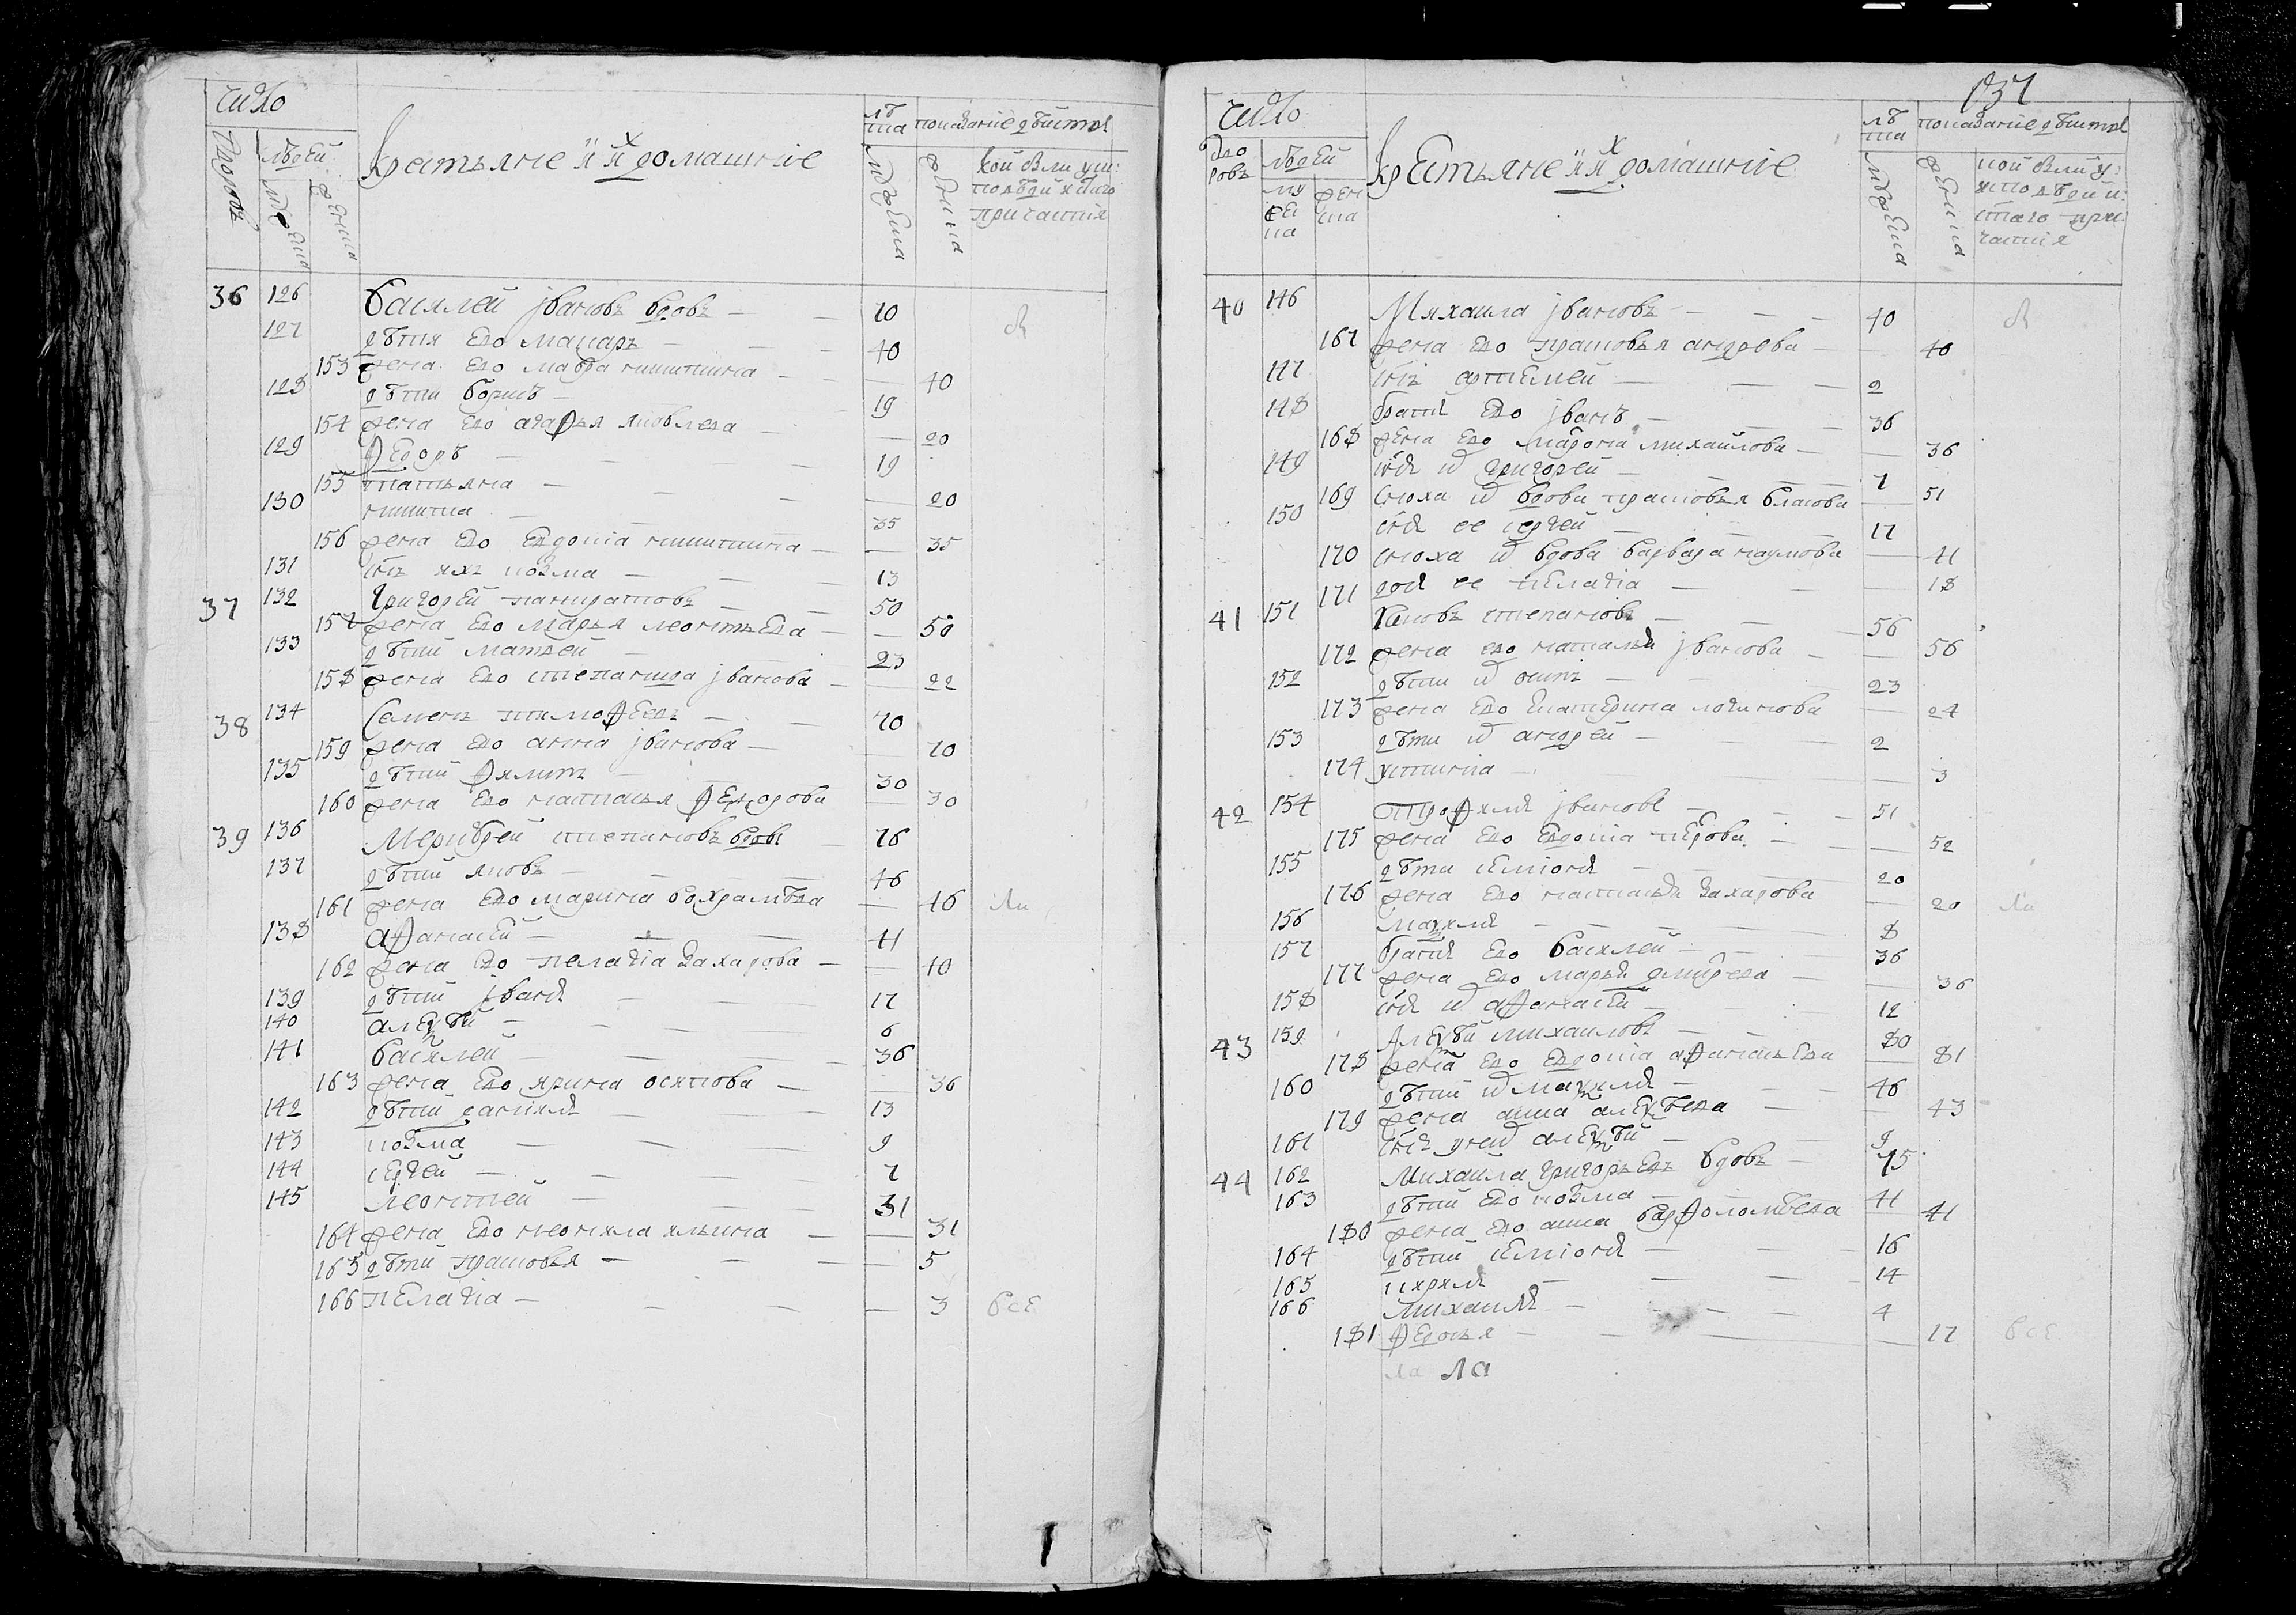 число
дворовъ людей мужеска женска
крестьяне и их домашние
лѣта показание дѣйства
мужеска женска
кой были у исповѣди и святаго причастия
36 126 Василей Iвановъ вдовъ 70
127 дѣти ево макаръ 40
153 жена ево мавра никитина 40
128 дѣти борисъ 19
154 жена ево агафья яковлева 20
129 Федоръ 19
155 татьяна 20
130 никита 35
156 жена ево Евдокiа никитина 35
131 снъ ихъ козма 13
37 132 Григорей панкратовъ 50
157 жена ево марья леонтьева 50
133 дѣти матвей 23
158 жена ево степанида Iванова 22
38 134 Семенъ тимофеевъ 70
159 жена ево анна Iванова 70
135 дѣти Филипъ 30
160 жена ево наталья Федорова 30
39 136 Меркурей степановъ вдовъ 76
137 дѣти яковъ 46
161 жена ево марина варфамѣева 46
138 афанасей 41
162 жена ево пелагiа захарова 40
139 дѣти Iванъ 17
140 алексѣй 6
141 василей 36
163 жена ево ирина осипова 36
142 дѣти данилъ 13
143 козма 9
144 сергей 7
145 леонтей 31
164 жена ево неонила ильина 31
165 дѣти прасковья 5
166 пелагiа 3 все
137
число
дворовъ людей мужеска женска
крестьяне и их домашние
лѣта показание дѣйства
мужеска женска
кой были у исповѣди и святаго причастия
40 146 Михаила Iвановъ 40
167 жена ево прасковья андрева 40
147 снъ артемей 2
148 братъ ево Iванъ 36
168 жена ево мавра михайлова 36
149 снъ их григорей 7
169 сноха их вдова прасковья власова 51
150 снъ ее сергей 17
170 сноха их вдова варвара наумова 41
171 дочь ее пелагiа 18
41 151 Яковъ степановъ 56
172 жена ево наталья Iванова 56
152 дѣти их осипъ 23
173 жена ево Екатерина логинова 24
153 дѣти их андрей 2
174 устиньа 3
42 154 Трофимъ Iвановъ 51
175 жена ево Евдокiа петрова 52
155 дѣти семионъ 20
176 жена ево наталья захарова 20
156 максимъ 8
157 братъ ево василей 36
177 жена ево марья дмитрева 36
158 снъ их афанасей 12
43 159 Алексѣй михаиловъ 80
178 жена ево Евдокiа афанасьева 81
160 дѣти их максимъ 46
179 жена анна алексѣева 43
161 снъ у них алексѣй 9
44 162 Михаила григорьевъ вдовъ 75
163 дѣти ево козма 41
180 жена ево анна варфоломѣева 41
164 дѣти семионъ 16
165 кирилъ 14
166 михаилъ 4
181 Федосья 17 все
ла ла